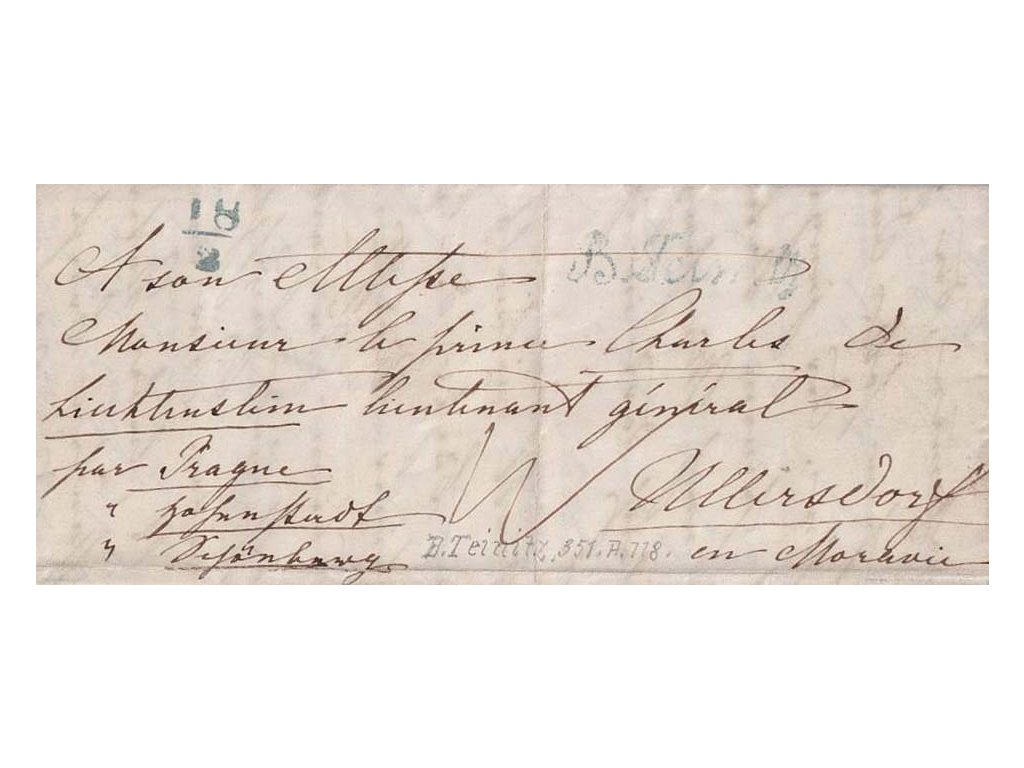 B. Teinitz
A son Altesse
Monsieur le prince Charles de
Liechtenstein lieutenant général
par Prague
" Hohenstadt
" Schönberg
Ullersdorf
en Moravie
B.Teinitz, 351. A. 718.